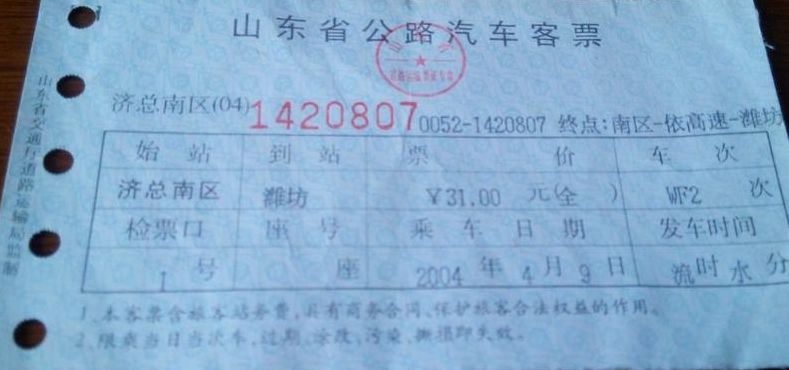 山东省公路汽车客票
济总南区(04)1420807 0052-1420807 终点:南区-依高速-潍坊
始站 到站 票价 车次
济总南区 潍坊 ￥31.00 元(全) WF2 次
检票口 座号 乘车日期 发车时间
1 号 座 2004 年 4 月 9 日 流时水分
1、本客票含旅客站务费,具有商务合同、保护旅客合法权益的作用。
2、限乘当日当次车,过期、涂改、污染、撕损即失效。
山东省交通厅道路运输局监制